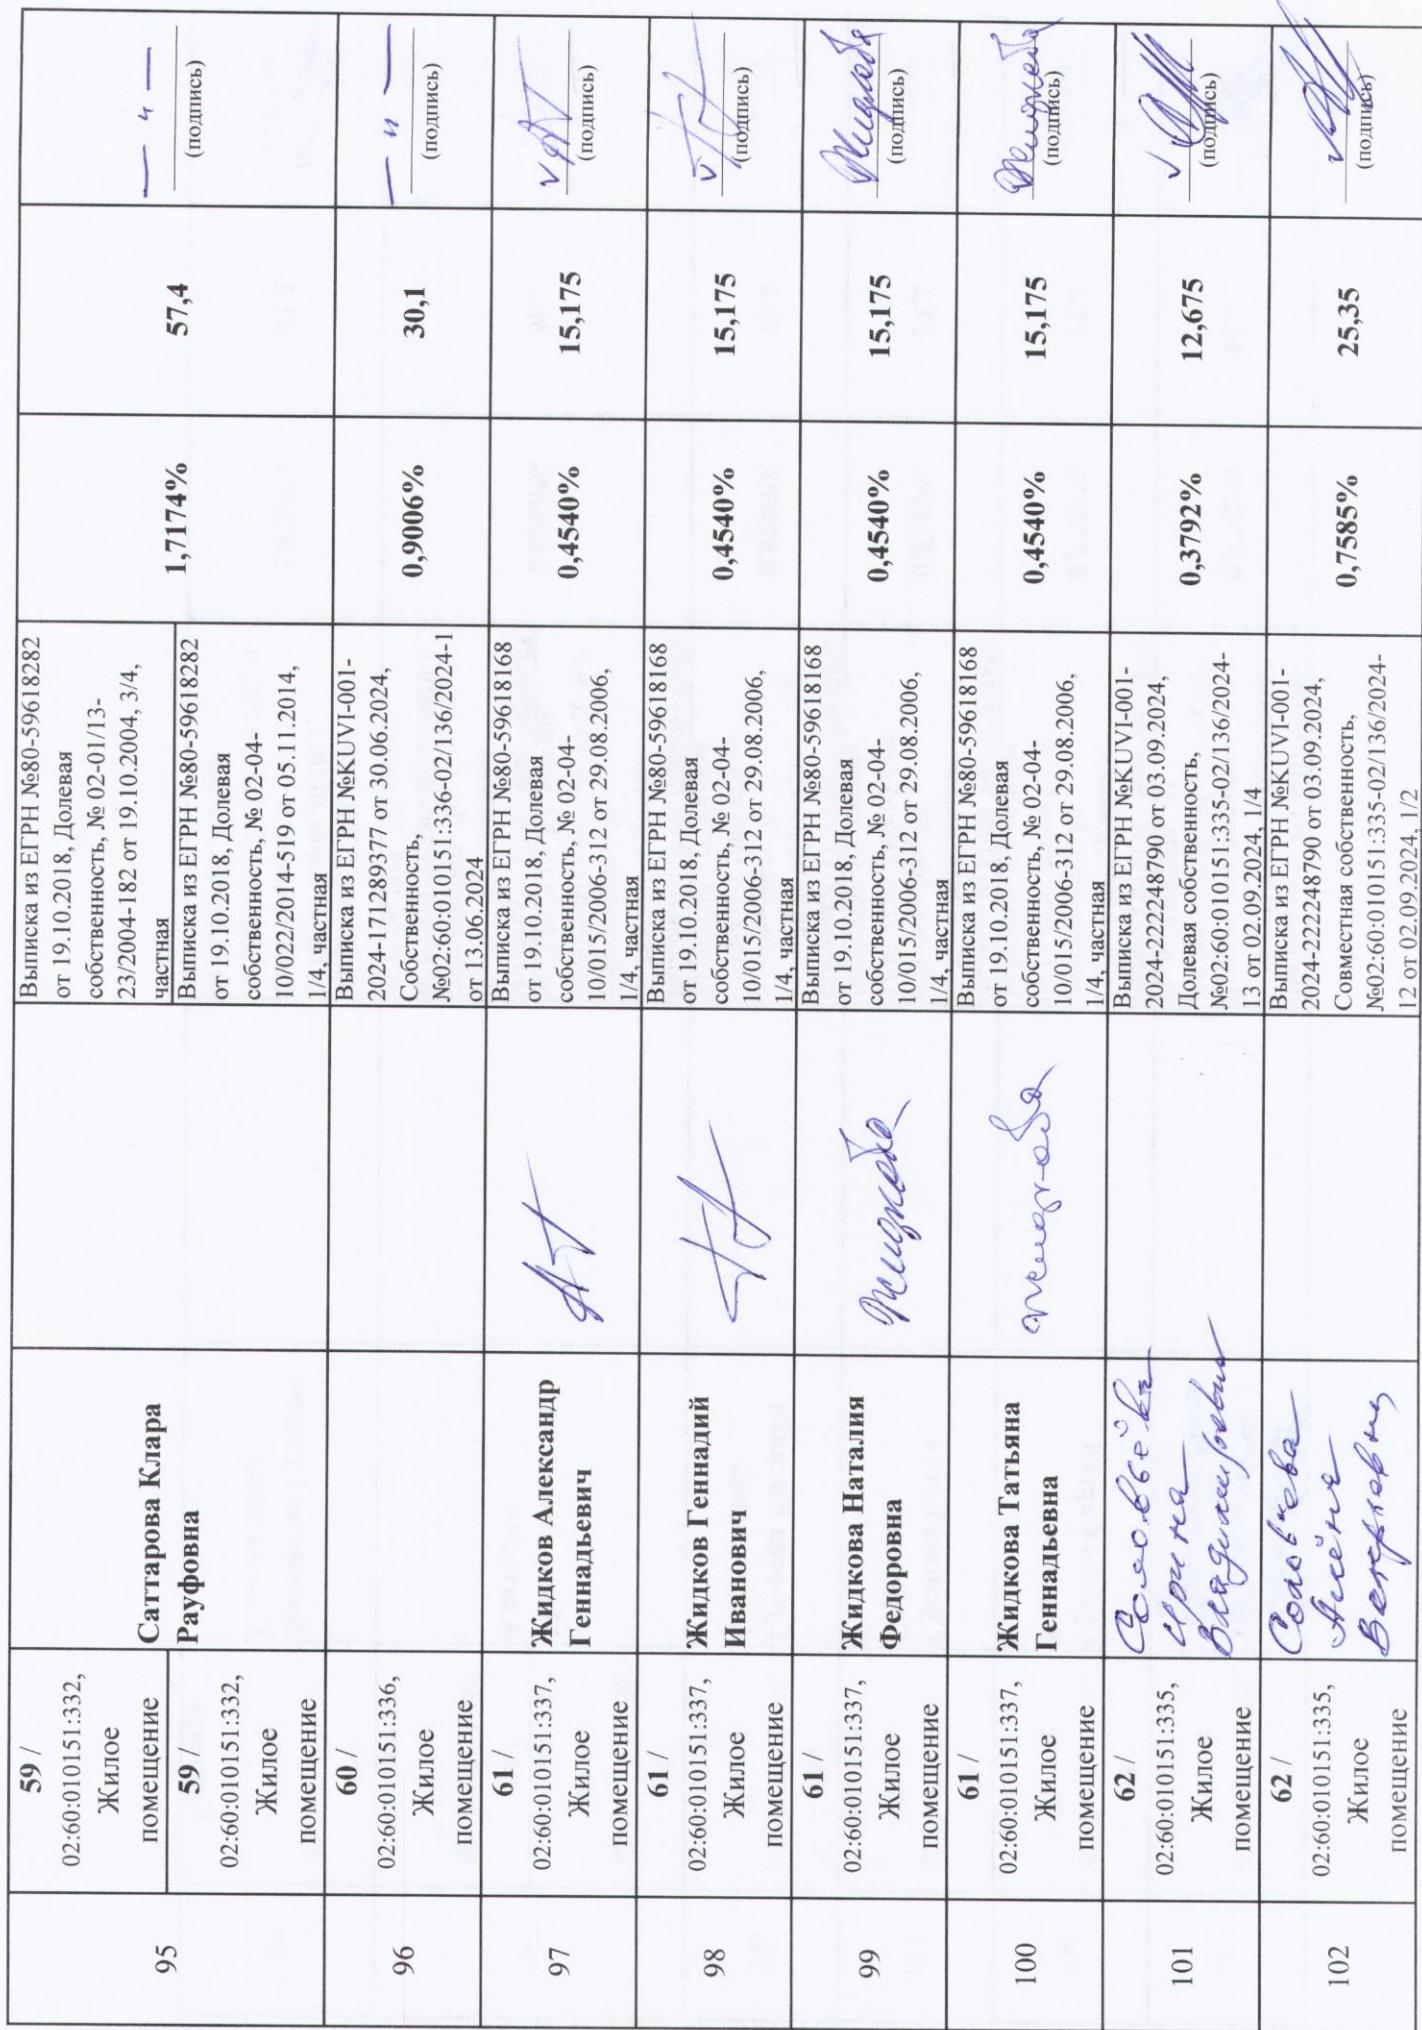 95
59 /
02:60:010151:332,
Жилое
помещение
59 /
02:60:010151:332,
Жилое
помещение
Саттарова Клара
Рауфовна
Выписка из ЕГРН №80-59618282
от 19.10.2018, Долевая
собственность, № 02-01/13-
23/2004-182 от 19.10.2004, 3/4,
частная
Выписка из ЕГРН №80-59618282
от 19.10.2018, Долевая
собственность, № 02-04-
10/022/2014-519 от 05.11.2014,
1/4, частная
1,7174%
57,4
— " —
(подпись)
96
60 /
02:60:010151:336,
Жилое
помещение
Выписка из ЕГРН №KUVI-001-
2024-171289377 от 30.06.2024,
Собственность,
№02:60:010151:336-02/136/2024-1
от 13.06.2024
0,9006%
30,1
— " —
(подпись)
97
61 /
02:60:010151:337,
Жилое
помещение
Жидков Александр
Геннадьевич
Выписка из ЕГРН №80-59618168
от 19.10.2018, Долевая
собственность, № 02-04-
10/015/2006-312 от 29.08.2006,
1/4, частная
0,4540%
15,175
(подпись)
98
61 /
02:60:010151:337,
Жилое
помещение
Жидков Геннадий
Иванович
Выписка из ЕГРН №80-59618168
от 19.10.2018, Долевая
собственность, № 02-04-
10/015/2006-312 от 29.08.2006,
1/4, частная
0,4540%
15,175
(подпись)
99
61 /
02:60:010151:337,
Жилое
помещение
Жидкова Наталия
Федоровна
Жидкова
Выписка из ЕГРН №80-59618168
от 19.10.2018, Долевая
собственность, № 02-04-
10/015/2006-312 от 29.08.2006,
1/4, частная
0,4540%
15,175
Жидкова
(подпись)
100
61 /
02:60:010151:337,
Жилое
помещение
Жидкова Татьяна
Геннадьевна
Жидкова
Выписка из ЕГРН №80-59618168
от 19.10.2018, Долевая
собственность, № 02-04-
10/015/2006-312 от 29.08.2006,
1/4, частная
0,4540%
15,175
Жидкова
(подпись)
101
62 /
02:60:010151:335,
Жилое
помещение
Соловьёва
Ирина
Владимировна
Выписка из ЕГРН №KUVI-001-
2024-222248790 от 03.09.2024,
Долевая собственность,
№02:60:010151:335-02/136/2024-
13 от 02.09.2024, 1/4
0,3792%
12,675
(подпись)
102
62 /
02:60:010151:335,
Жилое
помещение
Соловьева
Алёна
Валерьевна
Выписка из ЕГРН №KUVI-001-
2024-222248790 от 03.09.2024,
Совместная собственность,
№02:60:010151:335-02/136/2024-
12 от 02.09.2024, 1/2
0,7585%
25,35
(подпись)